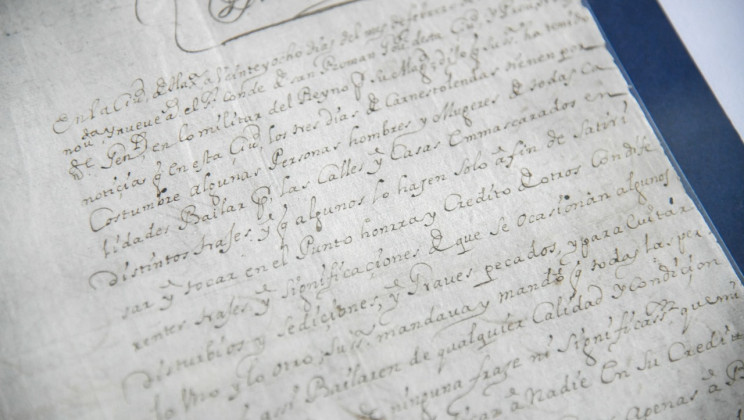 En la Ciud. de a Veinte y ocho dias del mes de febrero de
nov.ta y nueve a. el S.r Conde de san Roman Gou. desta Ciud. y
Gen.l en lo militar del Reyno p. su Mag.d dijo q. su s.a ha tenido
noticia q. en esta Ciu.d los tres dias de Carnestolendas tienen por
Costumbre algunas Personas hombres y Mugeres de todas Ca
lidades Bailar p. las Calles y Casas Enmascarados en
distintos trajes y q. algunos lo hazen solo a fin de Satiri
sar y tocar en el Punto honrra y Credito de otros Con dife
rentes trajes y significaciones de que se ocasionan algunos
disturbios y sediciones, y Graves pecados, y para Euitar
lo Vno y lo otro, su s.a mandava y mandó q. todas las per
assi Bailaren de qualquier Calidad y Condicion
ninguna frase ni significass.n que mi
a Nadie En su Credit
apenas a P